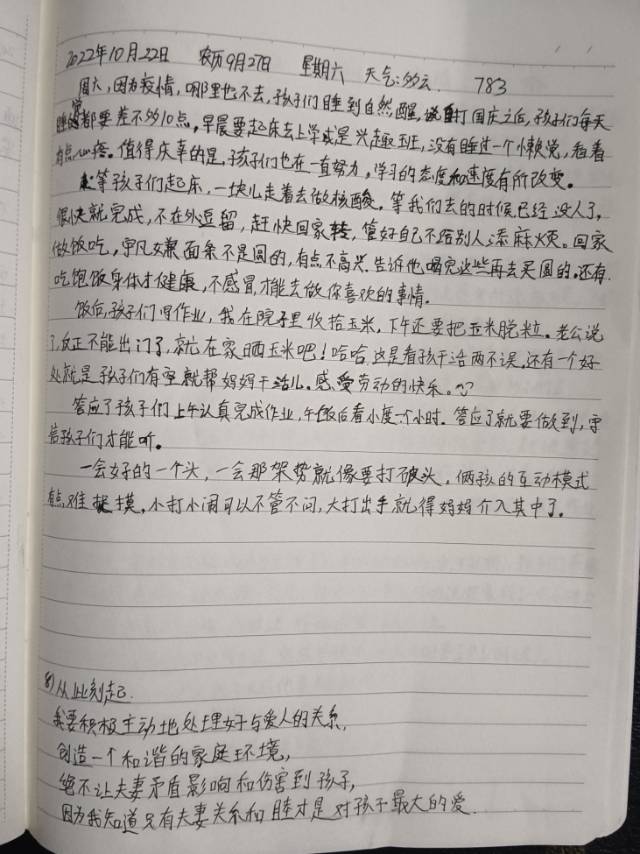 2022年10月22日 农历9月27日 星期六 天气:多云. 783
周六,因为疫情,哪里也不去,孩子们睡到自然醒,打国庆之后,孩子们每天
睡觉都要差不多10点,早晨要起床去上学或是兴趣班,没有睡过一个懒觉,看着
有点心疼。值得庆幸的是,孩子们也在一直努力,学习的态度和速度有所改变。
等孩子们起床,一块儿走着去做核酸。等我们去的时候已经没人了,
很快就完成,不在外逗留,赶快回家转,管好自己不给别人添麻烦。回家
做饭吃,平凡嫌面条不是圆的,有点不高兴.告诉他喝完这些再去买圆的.还有
吃饱饭身体才健康,不感冒,才能去做你喜欢的事情.
饭后,孩子们写作业,我在院子里收拾玉米,下午还要把玉米脱粒。老公说
了,反正不能出门了,就在家晒玉米吧!哈哈,这是看孩干活两不误,还有一个好
处就是孩子们有空就帮妈妈干活儿。感受劳动的快乐。
答应了孩子们上午认真完成作业,午饭后看小度一个小时.答应了就要做到,守
信孩子们才能听。
一会好的一个头,一会那架势就像要打破头,俩孩的互动模式
有点难捉摸,小打小闹可以不管不问,大打出手就得妈妈介入其中了。
8)从此刻起.
我要积极主动地处理好与爱人的关系,
创造一个和谐的家庭环境,
绝不让夫妻矛盾影响和伤害到孩子,
因为我知道只有夫妻关系和睦才是对孩子最大的爱.